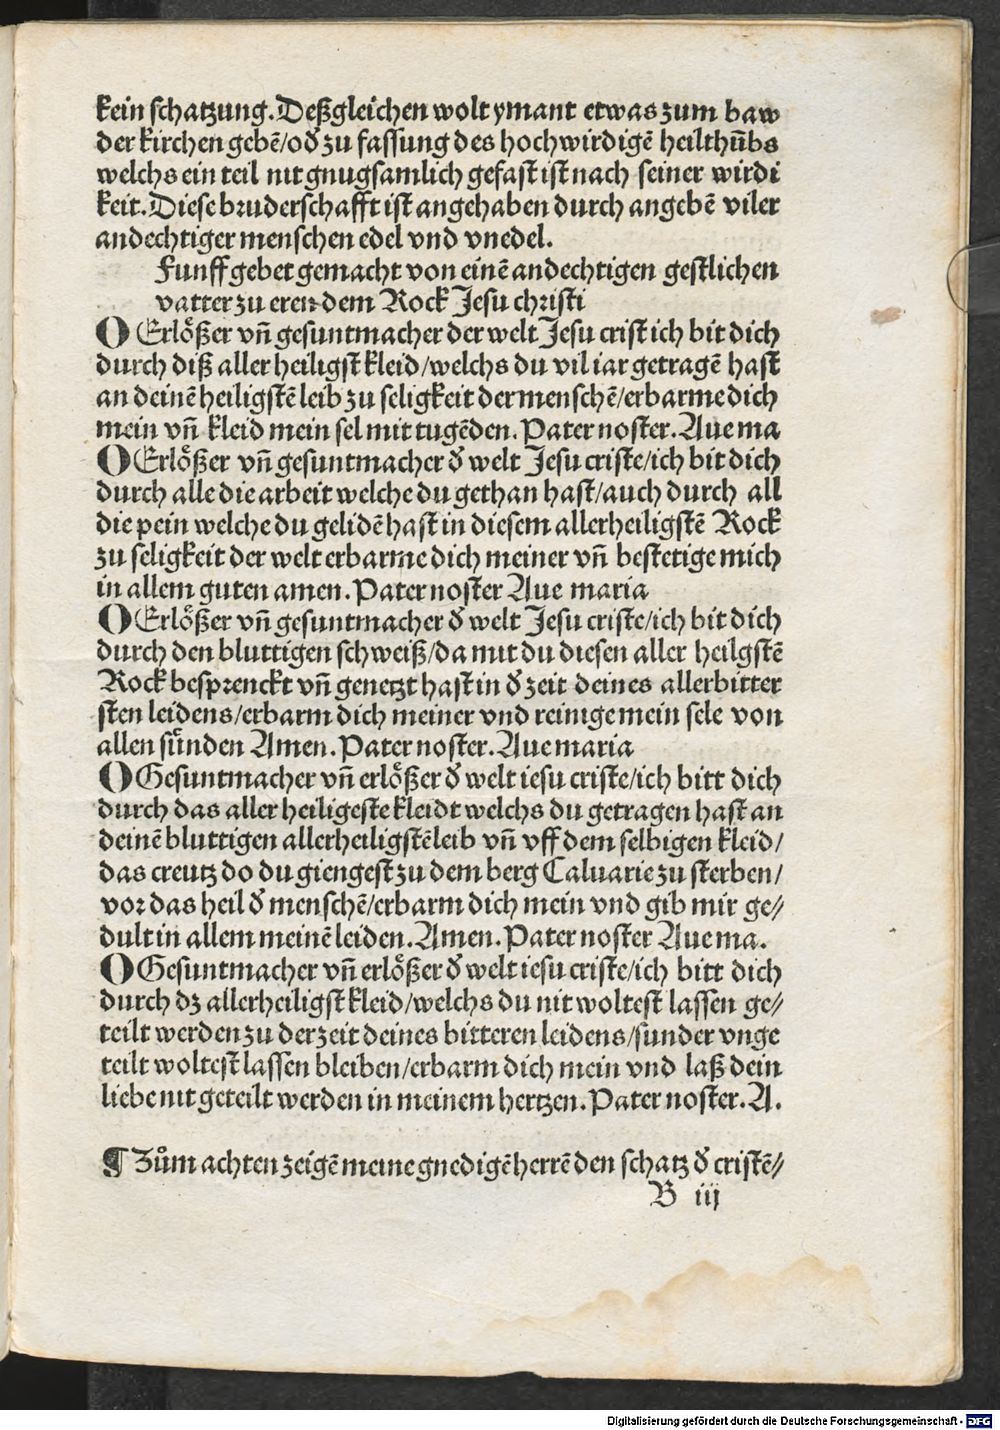 kein schatzung. Deßgleichen wolt ymant etwas zum baw
der kirchen gebē/od̕ zu fassung des hochwirdigē heilthūbs
welchs ein teil nit gnugsamlich gefast ist nach seiner wirdi
keit. Diese bruderschafft ist angehaben durch angebē viler
andechtiger menschen edel vnd vnedel.
Funff gebet gemacht von einē andechtigen gestlichen
vatter zu eren dem Rock Jesu christi
O Erlößer vn̄ gesuntmacher der welt Jesu crist ich bit dich
durch diß aller heiligst kleid/welchs du vil iar getragē hast
an deinē heiligstē leib zu seligkeit der menschē/erbarme dich
mein vn̄ kleid mein sel mit tugēden. Pater noster. Aue ma
O Erlößer vn̄ gesuntmacher d̕ welt Jesu criste/ich bit dich
durch alle die arbeit welche du gethan hast/auch durch all
die pein welche du gelidē hast in diesem allerheiligstē Rock
zu seligkeit der welt erbarme dich meiner vn̄ bestetige mich
in allem guten amen. Pater noster Aue maria
O Erlößer vn̄ gesuntmacher d̕ welt Jesu criste/ich bit dich
durch den bluttigen schweiß/da mit du diesen aller heilgstē
Rock besprenckt vn̄ genetzt hast in d̕ zeit deines allerbitter
sten leidens/erbarm dich meiner vnd reinige mein sele von
allen sünden Amen. Pater noster. Aue maria
O Gesuntmacher vn̄ erlößer d̕ welt iesu criste/ich bitt dich
durch das aller heiligeste kleidt welchs du getragen hast an
deinē bluttigen allerheiligstē leib vn̄ vff dem selbigen kleid/
das creutz do du giengest zu dem berg Caluarie zu sterben/
vor das heil d̕ menschē/erbarm dich mein vnd gib mir ge⸗
dult in allem meinē leiden. Amen. Pater noster Aue ma.
O Gesuntmacher vn̄ erlößer d̕ welt iesu criste/ich bitt dich
durch dz allerheiligst kleid/welchs du nit woltest lassen ge⸗
teilt werden zu der zeit deines bitteren leidens/sunder vnge
teilt woltest lassen bleiben/erbarm dich mein vnd laß dein
liebe nit geteilt werden in meinem hertzen. Pater noster. A.
¶ Zům achten zeigē meine gnedigē herrē den schatz d̕ cristē⸗
B iij
Digitalisierung gefördert durch die Deutsche Forschungsgemeinschaft - DFG